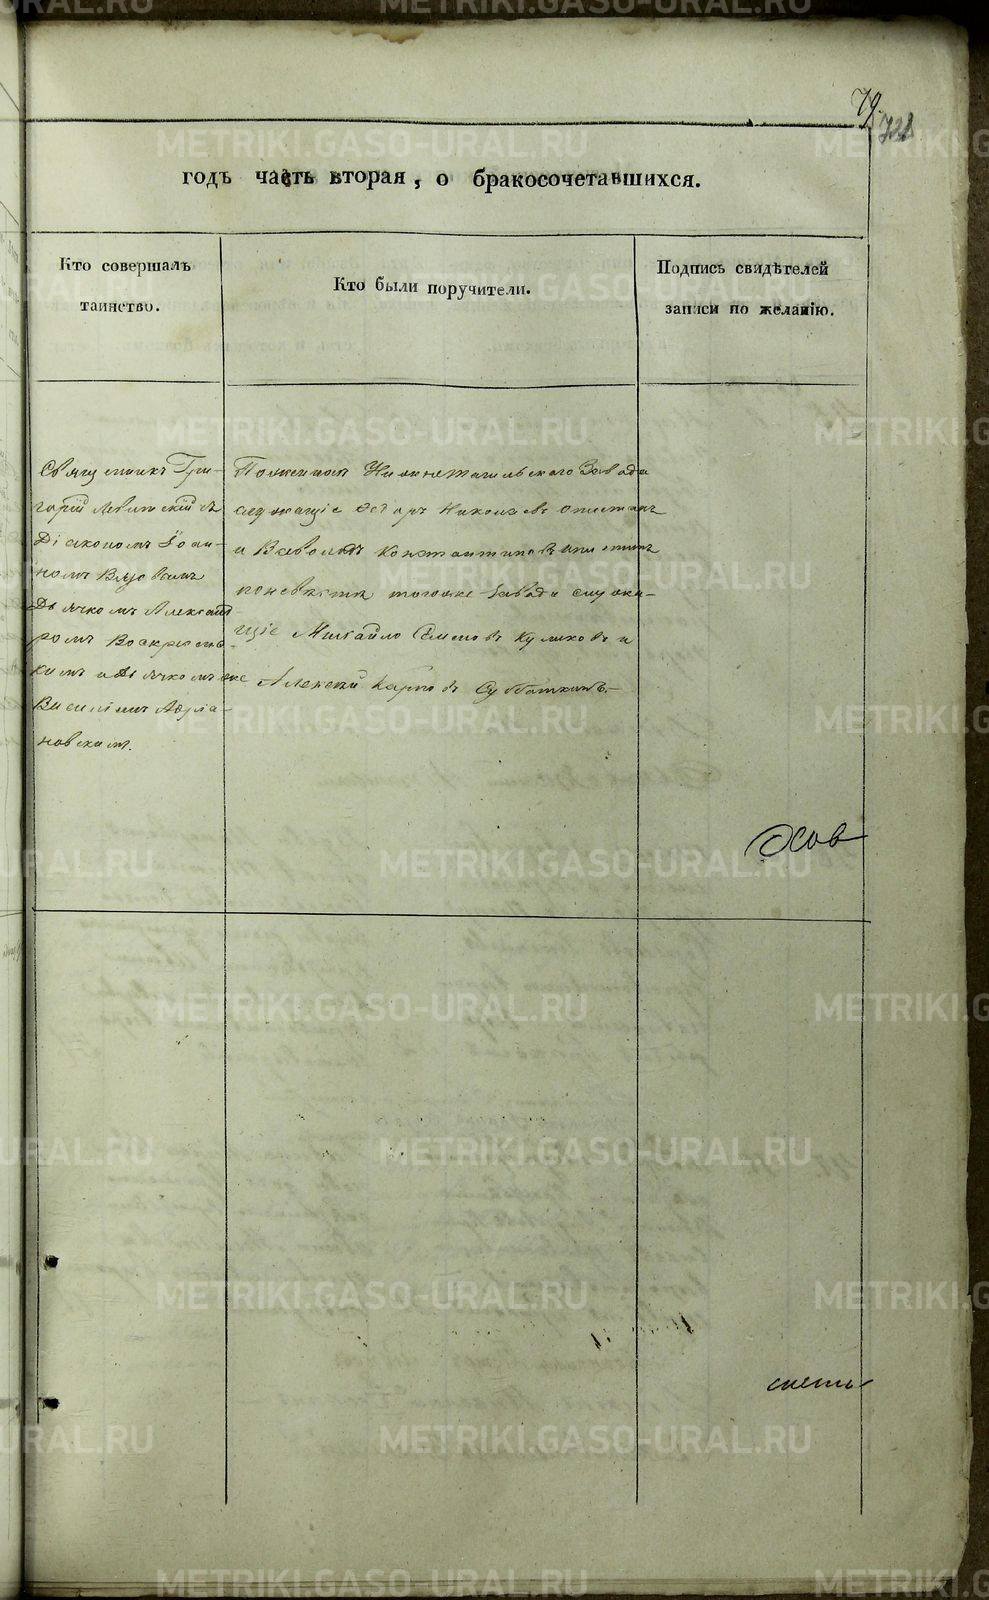 79.
728
годъ часть вторая, о бракосочетавшихся.
Кто совершалъ
таинство.
Кто были поручители.
Подпись свидѣтелей
записи по желанію.
Священникъ Гри-
горій Левитскій съ
Діакономъ Іоан-
номъ Вязовымъ
Дьячкомъ Александ
ромъ Воскресенс-
кимъ и Дьячкомъ же
Василіемъ Адріа-
новскимъ.
По женихѣ Нижнетагильскаго Завода
служащіе Ѳедоръ Николаевъ
и Всеволодъ Константиновъ
по невѣстѣ тогоже завода служа-
щіе Михайло Семеновъ Куликовъ и
Алексѣй Карповъ Субботинъ.
METRIKI.GASO-URAL.RU